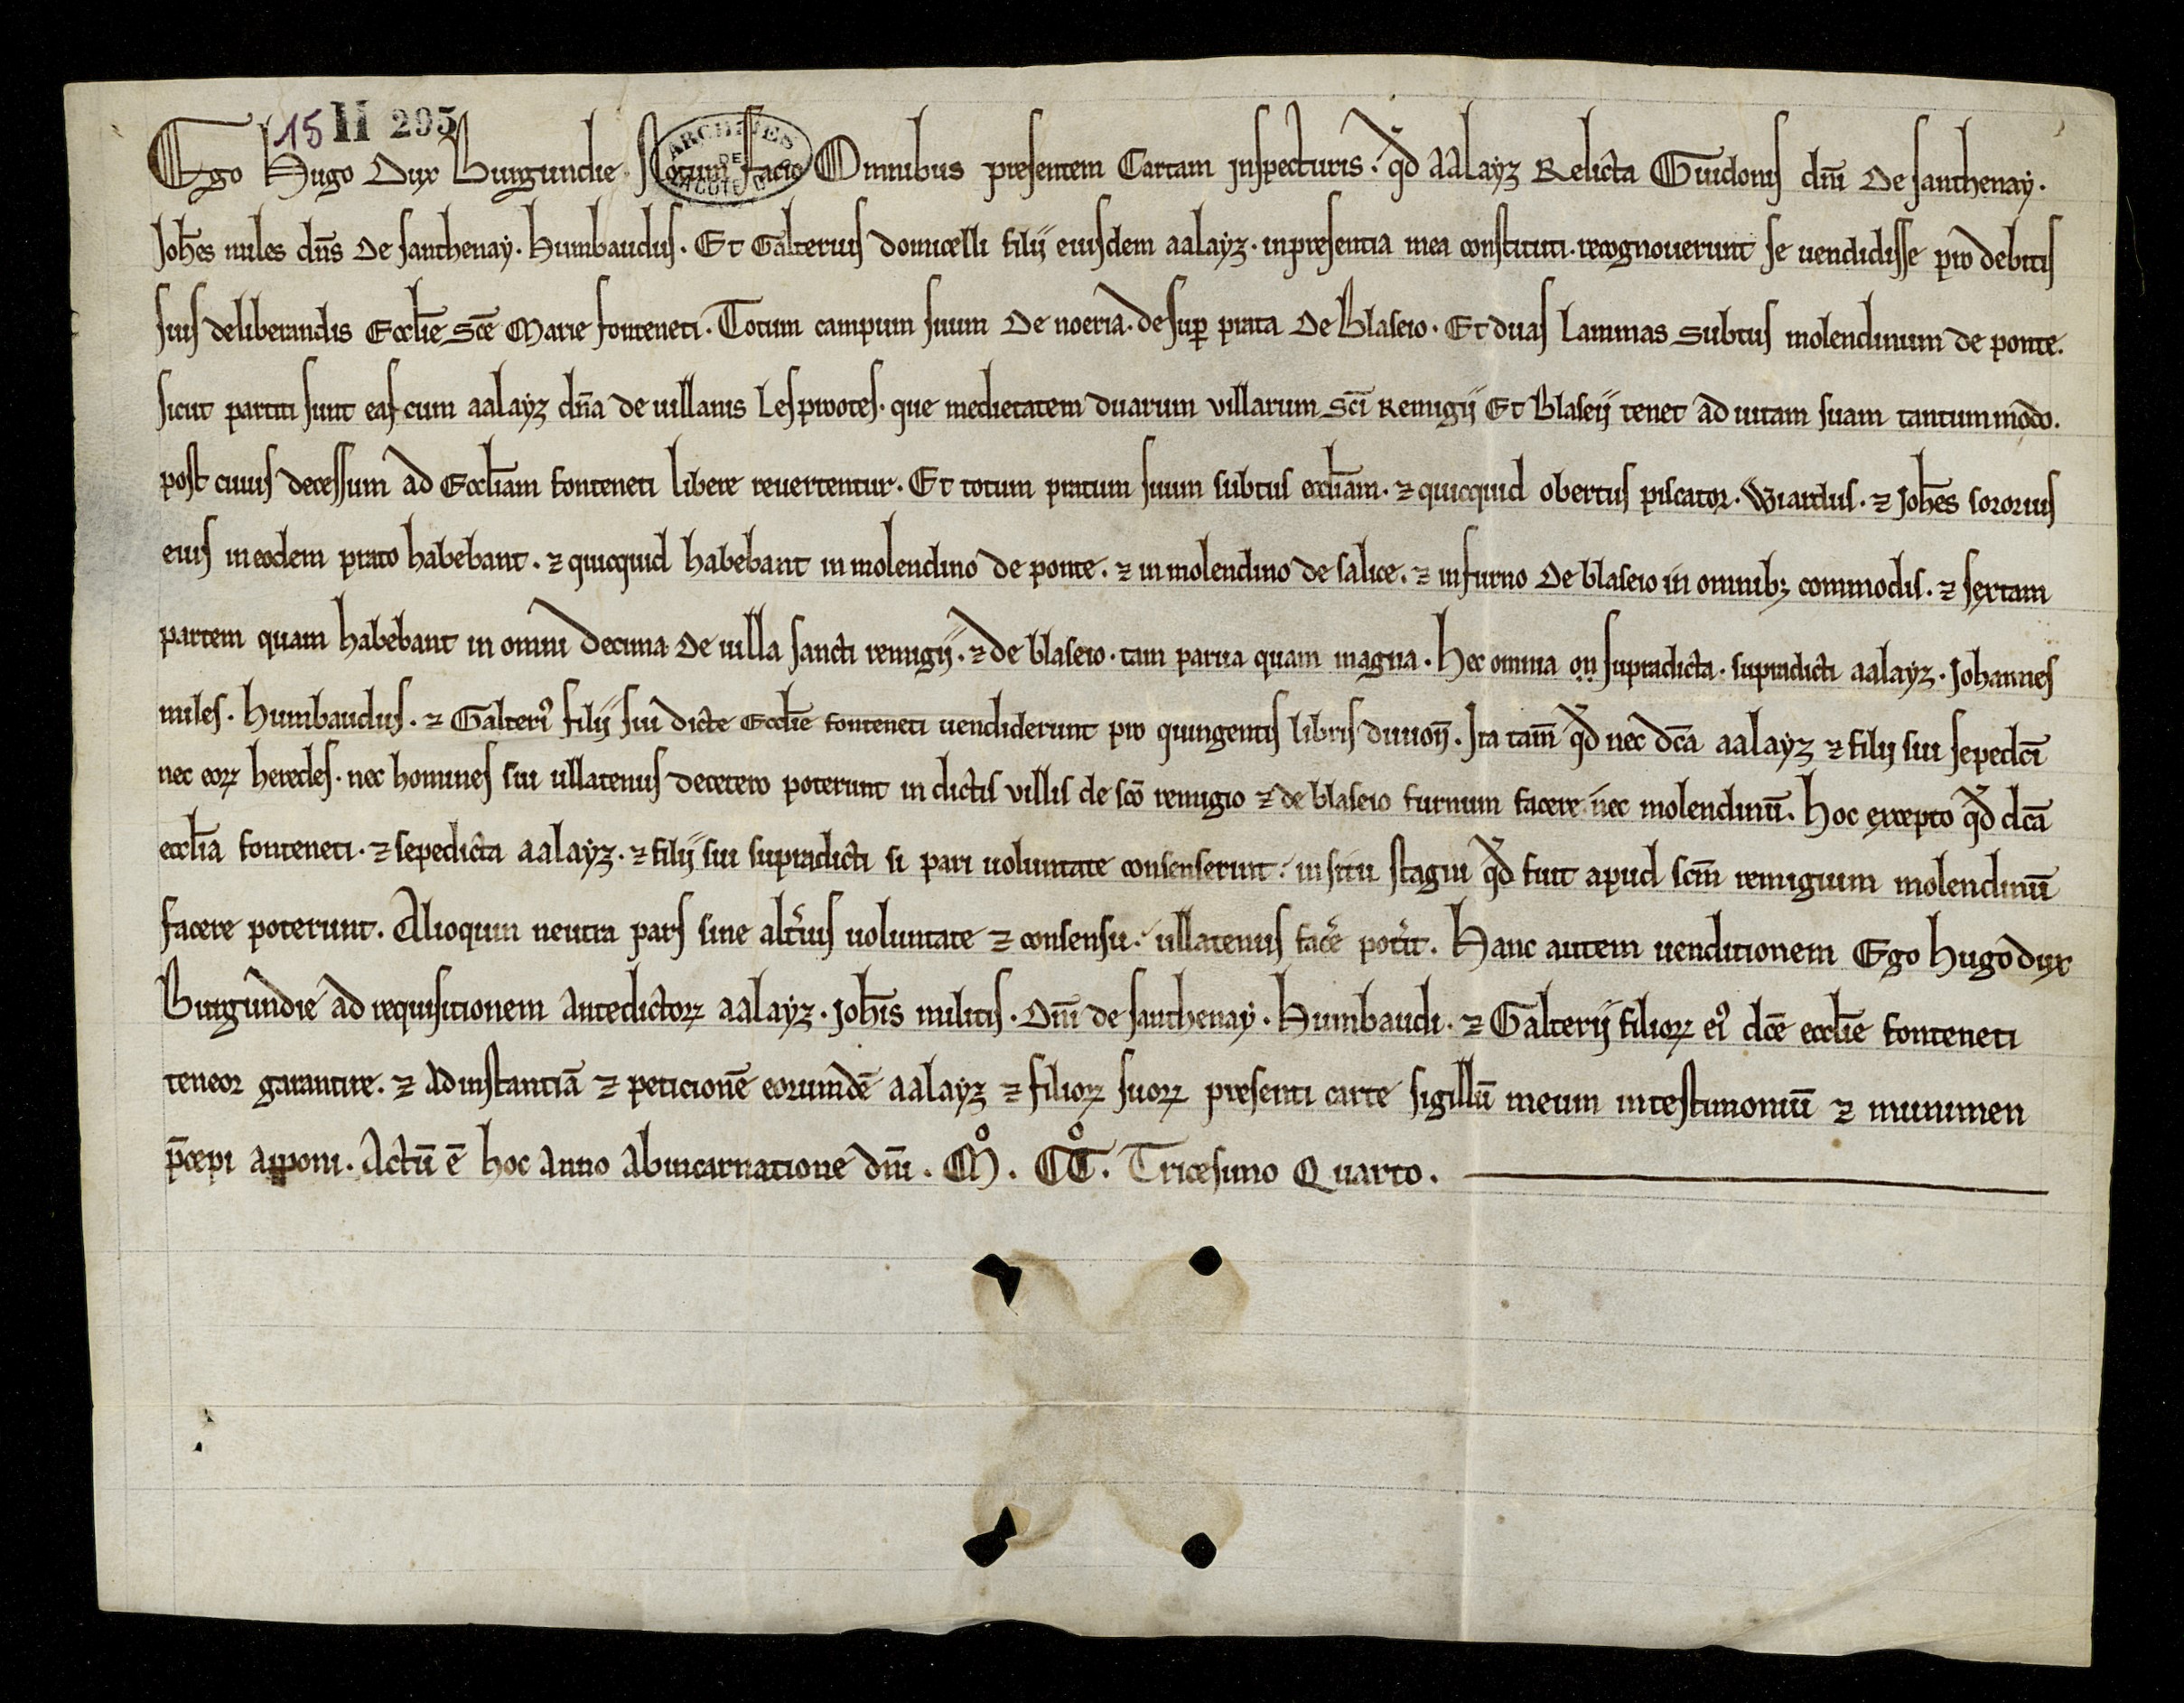 15 H 295
ARCHIVES DE LA CÔTE D'OR
Ego Hugo Dux Burgundie Notum facio Omnibus presentem Cartam inspecturis. qd̃ AAlayz Relicta Guidonis dñi De santhenay.
Joh̃es miles dñs De santhenay. Humbaudus. Et Galterius domicelli filij eiusdem aalayz. in presentia mea constituti. recognouerunt se uendidisse pro debitis
suis deliberandis Eccl̃ie Sc̃e Marie fonteneti. Totum campum suum De noeria. desuꝑ prata De Blaseio. Et duas Lammas Subtus molendinum de ponte.
sicut partiti sunt eas cum aalayz dña de uillanis Les prootes. que medietatem duarum villarum Sc̃i Remigij Et Blaseij tenet ad uitam suam tantummodo.
post cuius decessum ad Eccl̃iam fonteneti libere reuertentur. Et totum pratum suum subtus eccl̃iam. ⁊ quicquid obertus piscator. Wiardus. ⁊ Joh̃es sororius
eius in eodem prato habebant. ⁊ quicquid habebant in molendino de ponte. ⁊ in molendino de salice. ⁊ in furno De blaseio in omnibꝫ commodis. ⁊ sextam
partem quam habebant in omni decima De uilla sancti remigij. ⁊ de blaseio. tam parua quam magna. Hec omnia oṇ supradicta. supradicti aalayz. Johannes
miles. Humbaudus. ⁊ Galterꝰ filij sui dicte Eccl̃ie fonteneti uendiderunt pro quingentis libris diuioñ. Ita tam̃ qd̃ nec dc̃a aalayz ⁊ filij sui sepedc̃i
nec eoꝝ heredes. nec homines sui ullatenus decetero poterunt in dictis villis de sc̃o remigio ⁊ de blaseio furnum facere nec molendinũ. Hoc excepto qd̃ dc̃a
eccl̃ia fonteneti. ⁊ sepedicta aalayz. ⁊ filij sui supradicti si pari uoluntate consenserint. in situ stagni qd̃ fuit apud scm̃ remigium molendinũ
facere poterunt. Alioquin neutra pars sine alt̃ius uoluntate ⁊ consensu. ullatenus fac̃e pot̃it. Hanc autem uenditionem Ego Hugo dux
Burgundie ad requisitionem antedictoꝝ aalayz. Joh̃is militis. Dñi de santhenay. Humbaudi. ⁊ Galterij filioꝝ eiꝰ dc̃e eccl̃ie fonteneti
teneor garantire. ⁊ ad instantiã ⁊ peticionẽ eorumdẽ aalayz ⁊ filioꝝ suoꝝ presenti carte sigillũ meum in testimoniũ ⁊ munimen
p̃cepi apponi. Actũ ẽ hoc anno ab incarnatione dñi. Mº. CCº. Tricesimo Quarto.